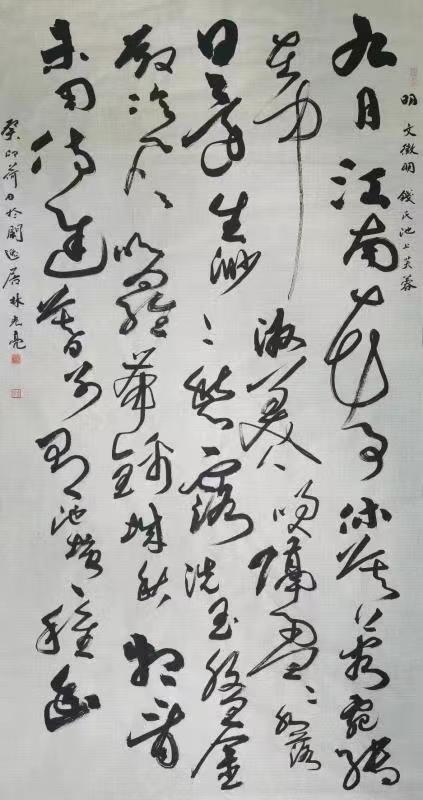 明 文徵明 錢氏池上芙蓉
九月江南花事休芙蓉宛轉
在中洲美人笑隔盈盈水落
日還生渺渺愁露洗玉盤金
殿冷風吹羅帶錦城秋相看
未用傷遲暮別有池塘一種幽
癸卯荷月於逸居林光亮